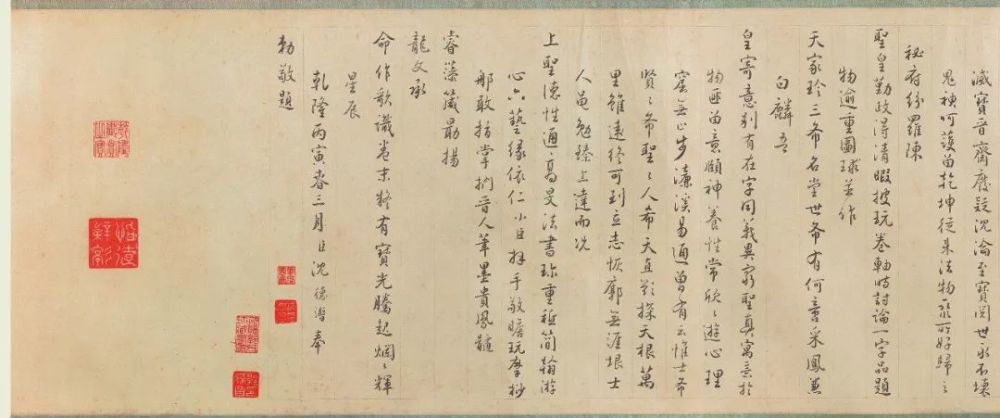 滅寶音齋廢疑沈淪至寶閟世永不壞
鬼神呵護留乾坤從來法物聚所好歸之
秘府紛羅陳
聖皇勤政得清暇披玩卷軸時討論一字品題
物逾重圖球並作
天家珍三希名堂世希有何啻采鳳兼
白麟吾
皇寄意別有在字同義異窮聖真寓意於
物匪留意頤神養性常欣々遊心理
窟無止步濂溪易通曾有云惟士希
賢々希聖々人希天直欲探天根萬
里雖遠終可到立志恢廓無涯垠士
人黽勉臻上達而況
上聖德性通高旻法書珍重種簡翰游
心六藝緣依仁小臣拜手敬瞻玩摩挲
那敢指掌捫晉人筆墨貴風髓
睿藻箴勗揚
龍文承
命作歌識卷末疑有寶光騰起爛々輝
星辰
乾隆丙寅春三月臣沈德潛奉
勅敬題